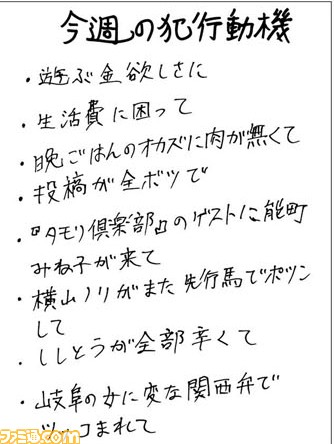 今週の犯行動機
・遊ぶ金欲しさに
・生活費に困って
・晩ごはんのオカズに肉が無くて
・投稿が全ボツで
・『タモリ倶楽部』のゲストに能町
みね子が来て
・横山ノリがまた先行馬でポツン
して
・ししとうが全部辛くて
・岐阜の女に変な関西弁で
ツッコまれて
ファミ通.com